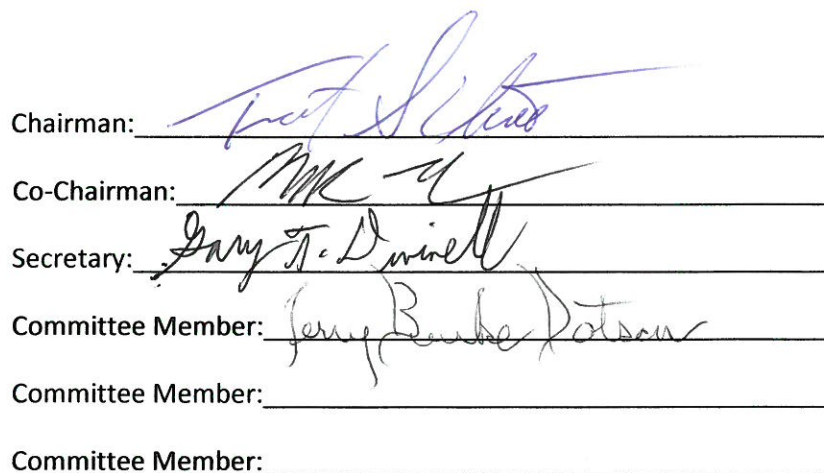 Chairman:
Co-Chairman:
Secretary: Gary
Committee Member: Jerry Burke Dotson
Committee Member:
Committee Member: